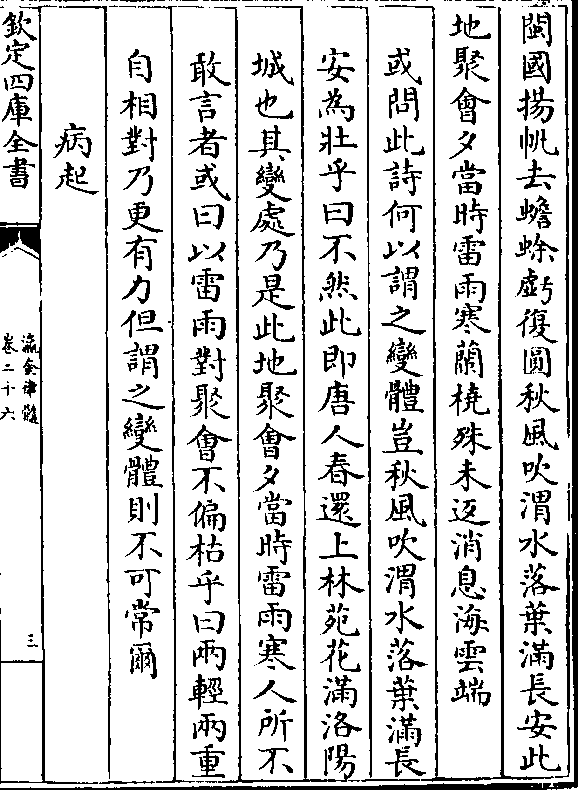 閩國揚帆去蟾蜍虧復圓秋風吹渭水落葉滿長安此
地聚會夕當時雷雨寒蘭橈殊未返消息海雲端
或問此詩何以謂之變體豈秋風吹渭水落葉滿長
安為壮乎曰不然此即唐人春還上林苑花滿洛陽
城也其變處乃是此地聚會夕當時雷雨寒人所不
敢言者或曰以雷雨對聚會不偏枯乎曰兩輕兩重
自相對乃更有力但謂之變體則不可常爾
病起
欽定四庫全書
瀛奎律髓
卷二十六
三